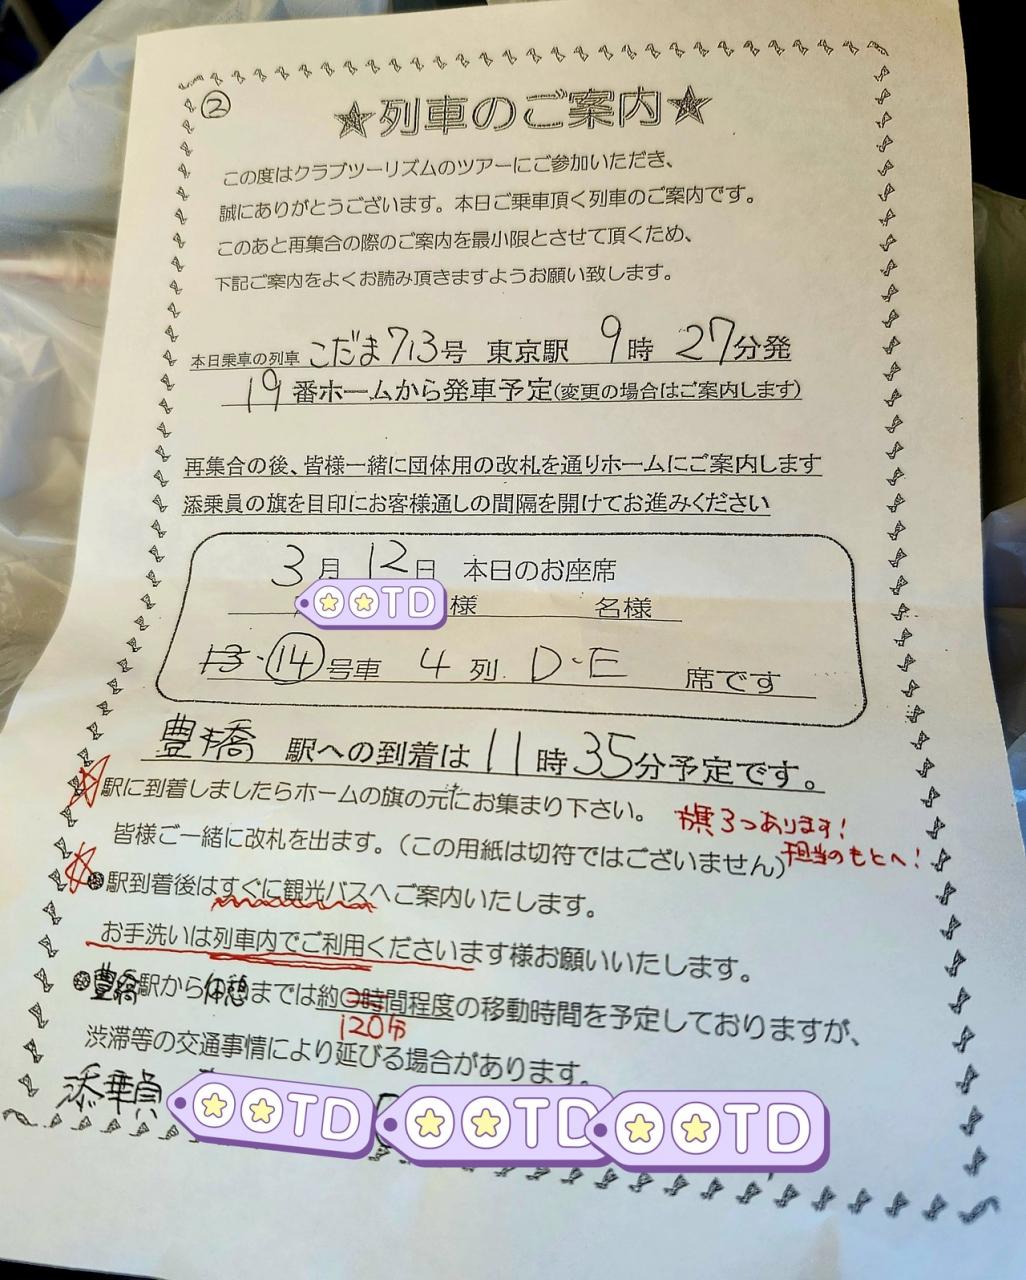 ②
★列車のご案内★
この度はクラブツーリズムのツアーにご参加いただき、
誠にありがとうございます。本日ご乗車頂く列車のご案内です。
このあと再集合の際のご案内を最小限とさせて頂くため、
下記ご案内をよくお読み頂きますようお願い致します。
本日乗車の列車 こだま713号 東京駅 9時 27分発
19番ホームから発車予定(変更の場合はご案内します)
再集合の後、皆様一緒に団体用の改札を通りホームにご案内します
添乗員の旗を目印にお客様通しの間隔を開けてお進みください
3月 12日 本日のお座席
OOTD 様 名様
13・14号車 4列 D・E 席です
豊橋 駅への到着は11時35分予定です。
駅に到着しましたらホームの旗の元にお集まり下さい。
旗3つあります!
皆様ご一緒に改札を出ます。(この用紙は切符ではございません)
担当のもとへ!
駅到着後はすぐに観光バスへご案内いたします。
お手洗いは列車内でご利用くださいます様お願いいたします。
豊橋駅から休憩までは約〇時間程度の移動時間を予定しておりますが、
120分
渋滞等の交通事情により延びる場合があります。
添乗員
OOTD OOTD OOTD